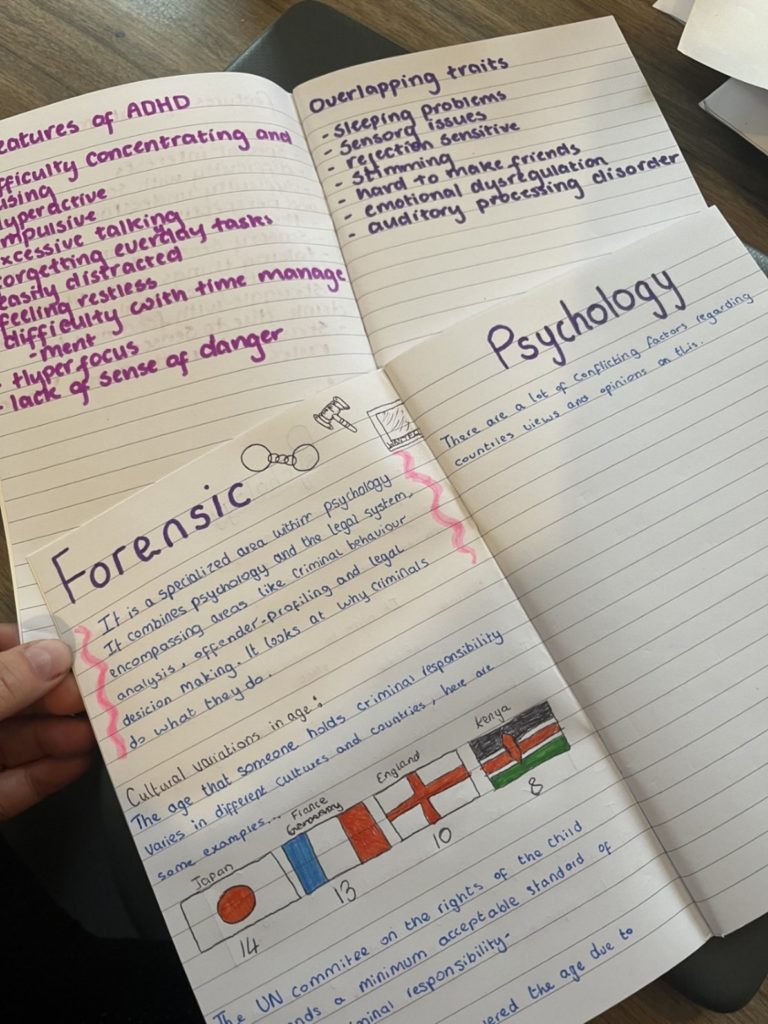 eatures of ADHD
fficulty concentrating and
using
yperactive
mpulsive
xcessive talking
orgetting everyday tasks
easily distracted
feeling restless
difficulty with time manage
-ment
- Hyperfocus
- lack of sense of danger
Overlapping traits
- sleeping problems
- sensory issues
- rejection sensitive
- stimming
- hard to make friends
- emotional dysregulation
- auditory processing disorder
Forensic
WANTED
It is a specialized area within psychology
It combines psychology and the legal system,
encompassing areas like criminal behaviour
analysis, offender-profiling and legal
desicion making. It looks at why criminals
do what they do.
Cultural variations in age:
The age that someone holds criminal responsibility
varies in different cultures and countries, here are
some examples...
Japan
France
Germany
England
Kenya
14
13
10
8
The UN commitee on the rights of the child
nds a minimum acceptable standard of
minal responsibility.
ered the age due to
Psychology
There are a lot of conflicting factors regarding
countries views and opinions on this.